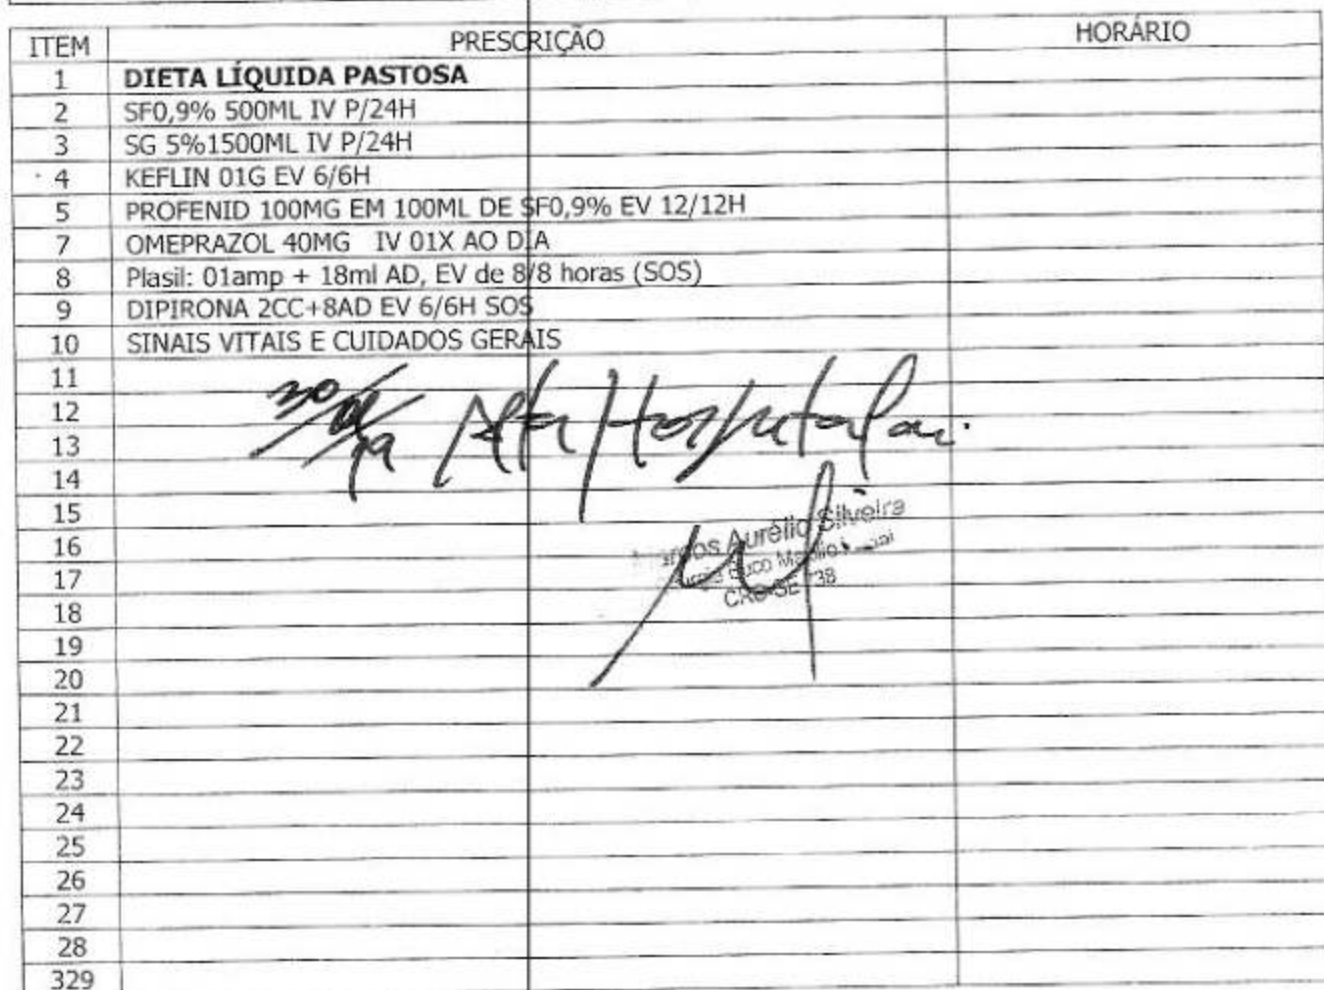 ITEM PRESCRIÇÃO HORÁRIO
1 DIETA LÍQUIDA PASTOSA
2 SF0,9% 500ML IV P/24H
3 SG 5%1500ML IV P/24H
4 KEFLIN 01G EV 6/6H
5 PROFENID 100MG EM 100ML DE SF0,9% EV 12/12H
7 OMEPRAZOL 40MG IV 01X AO DIA
8 Plasil: 01amp + 18ml AD, EV de 8/8 horas (SOS)
9 DIPIRONA 2CC+8AD EV 6/6H SOS
10 SINAIS VITAIS E CUIDADOS GERAIS
11
12 Alta Hospitalar
13
14
15
Aurélio Silveira
16
17
CRO-SE
18
19
20
21
22
23
24
25
26
27
28
329